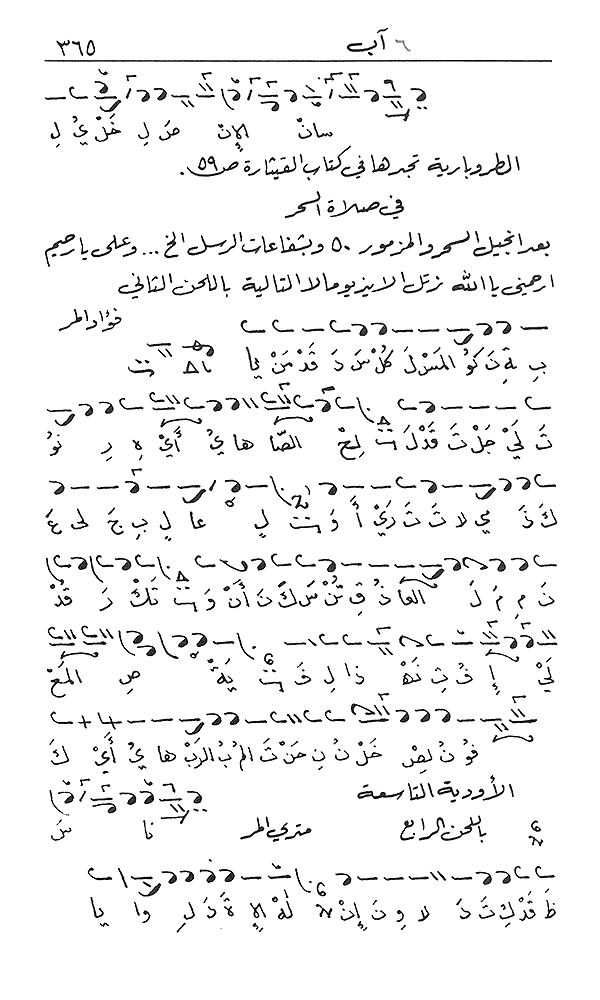 ٦ آب ٣٦٥
سانْ الإِنْ صَ لِ خَلْ يُ لِ
الطروبارية تجدها في كتاب القيثارة ص ٥٩.
في صلاة السحر
بعد انجيل السحر والمزمور ٥٠ وبشفاعات الرسل الخ ... وعلى يا رحيم
ارحمني يا الله نرتل الايذيومالا التالية باللحن الثاني
فؤاد المر
بِ ةِ نَ كو المَسْ لَ كُلْ سَ دَ قَدْ مَنْ يا
تَ لَيْ جَلْ تَ قَدْ لَ لِحْ الصّا ها يُ أَيْ هِ رِ نو
كَ ذَ مي لا تَ تَ رَيْ أَ وَ لِ عا لِ بِ جَ لى عَ
نَ مِ مَ لَ العا ذُ قِ تُنْ سَ كَ نَ أَنْ وَ تَكْ رَ قُدْ
لَيْ إِ فُ تِ نَهْ ذا لِ فَ يَةْ صِ المَعْ
فو نُ لِصْ خَلْ نُ نِ حَنْ تَ المُ بُ الرَبْ ها يُ أَيْ كَ
الأودية التاسعة
باللحن الرابع متري المر نا سَ
ظَ قَدْ كِ تَ دَ لا وِ نَ إِنْ لَهْ الإِ ةَ دَ لِ وا يا